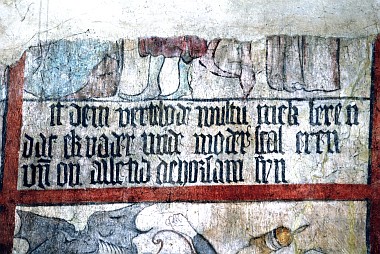 it dem verbode wultu mick leren
dat ek vader unde moder scal eren
uñ on alletid gehorsam syn